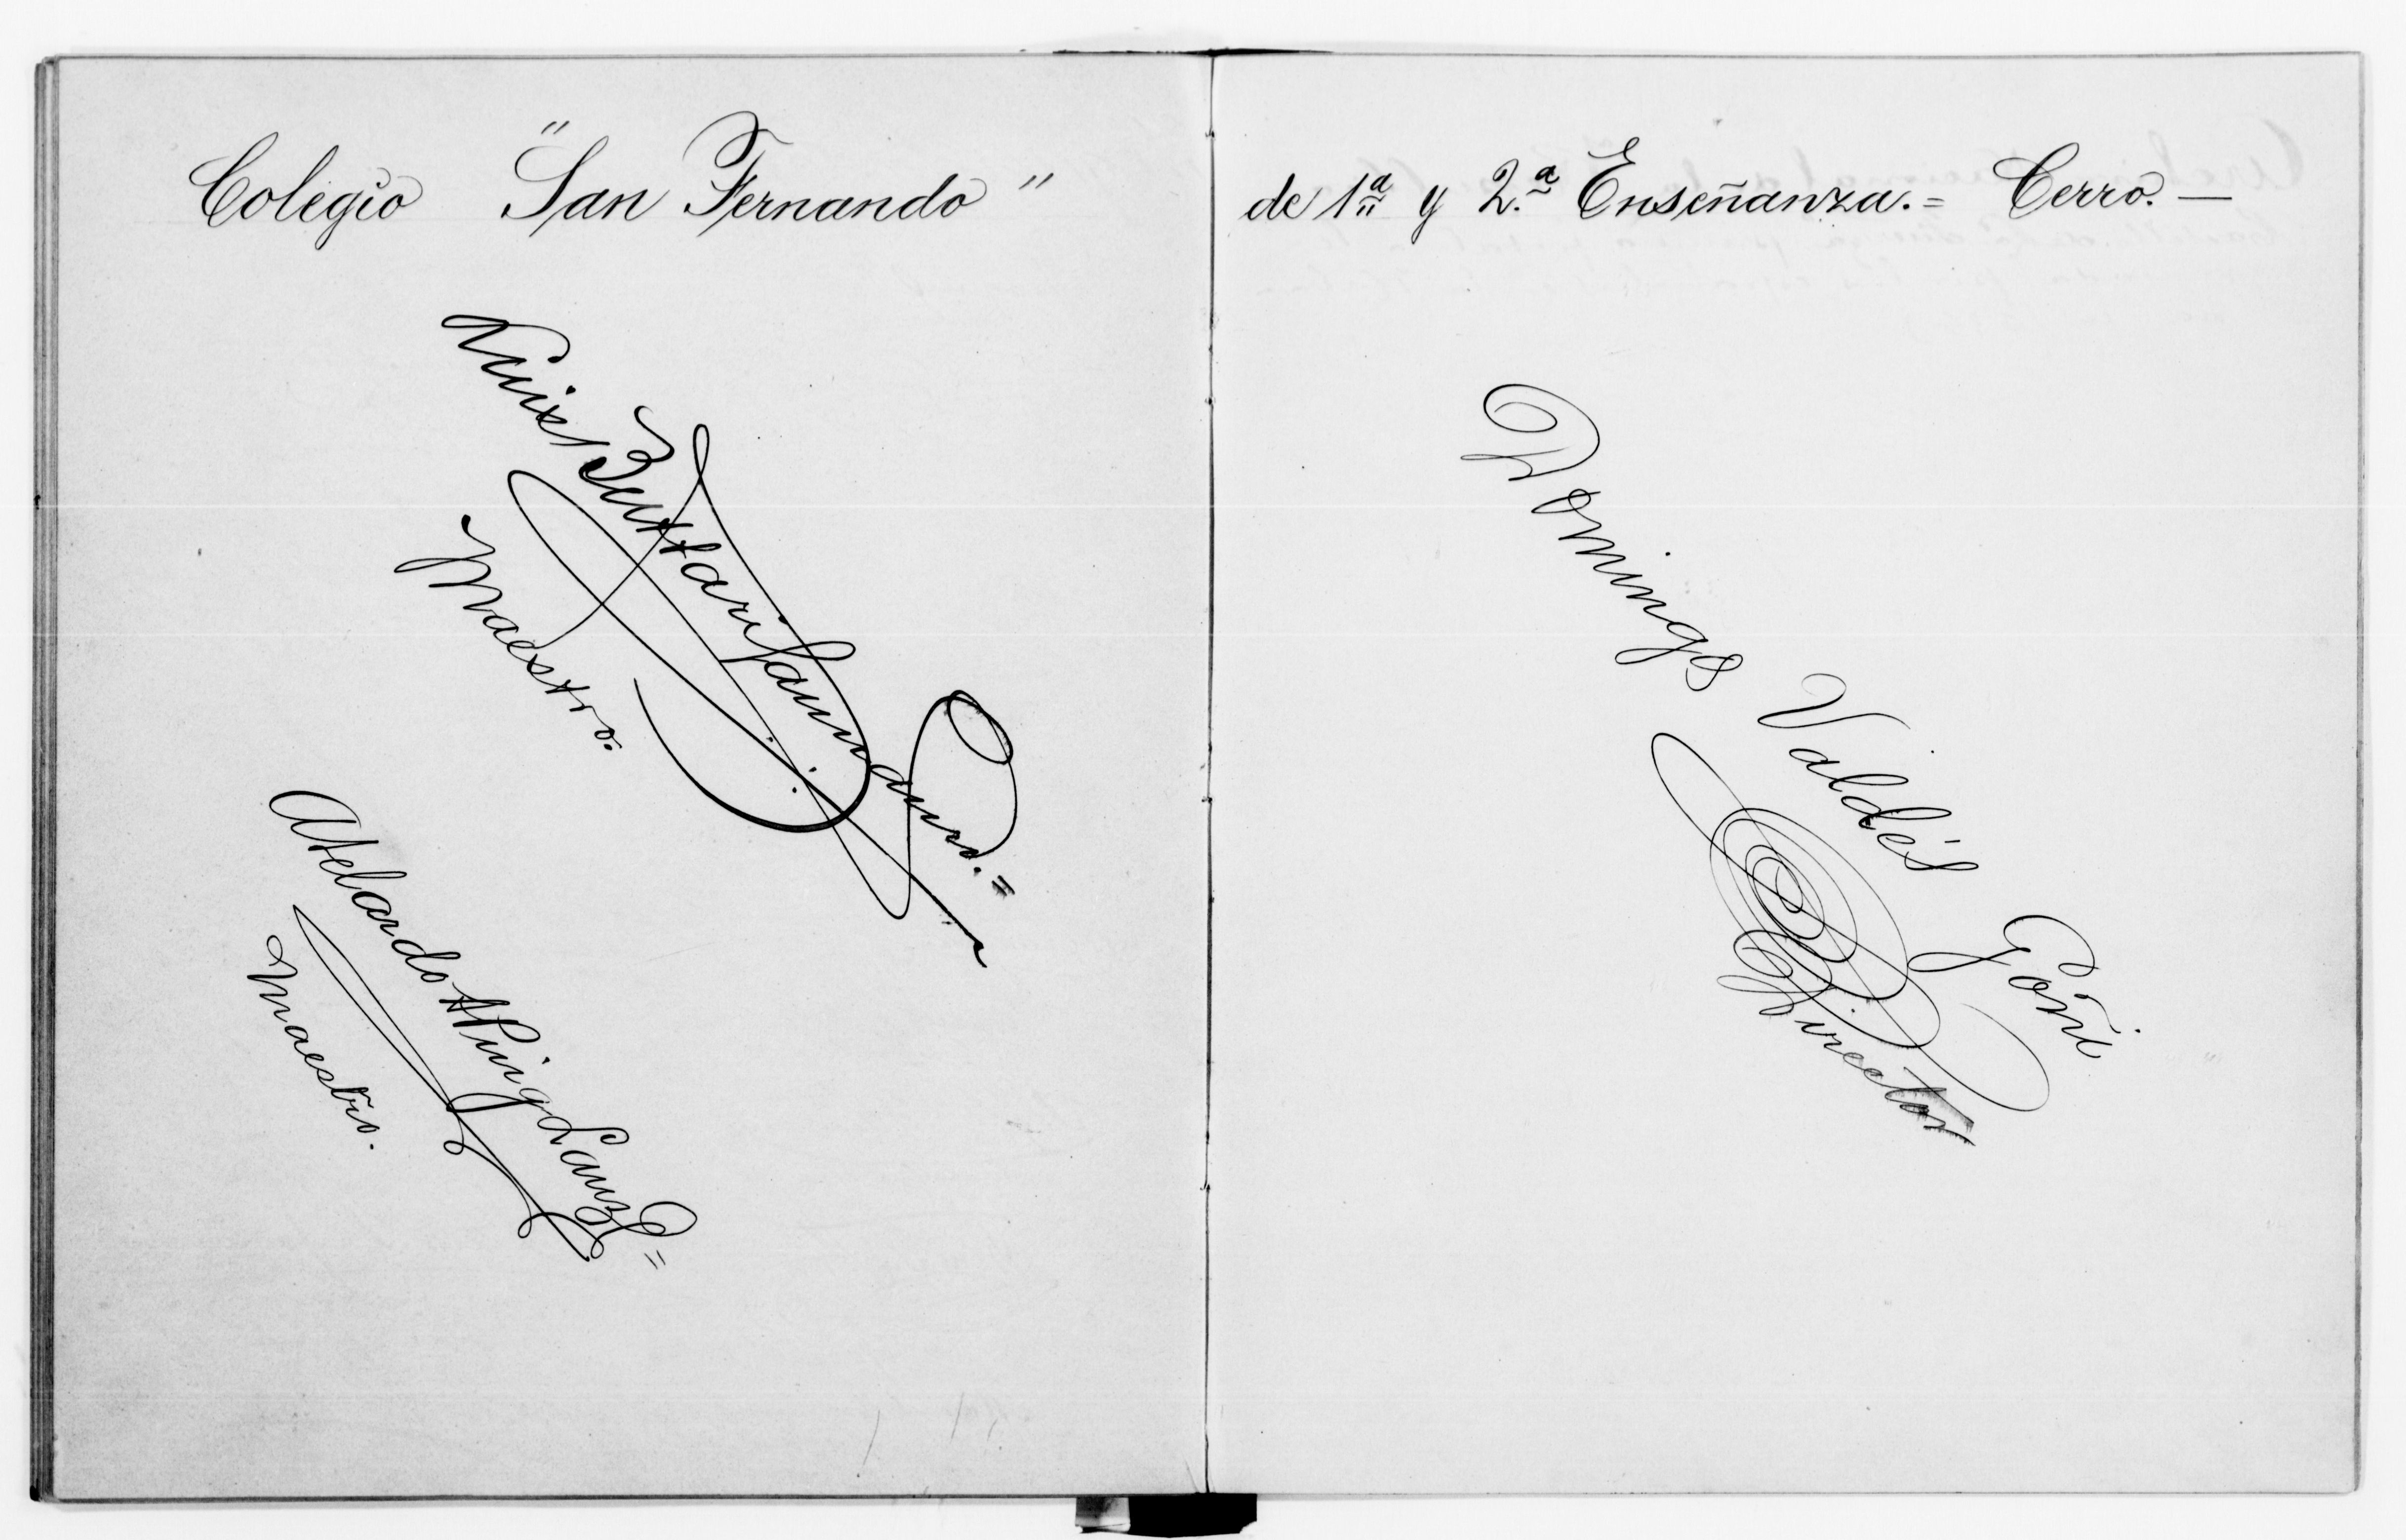 Colegio "San Fernando"
de 1ª y 2.ª Enseñanza.= Cerro. —
Luis
Maestro.
Abelardo A Puig Lanz =
Maestro.
Domingo Valdés Goñi
Director